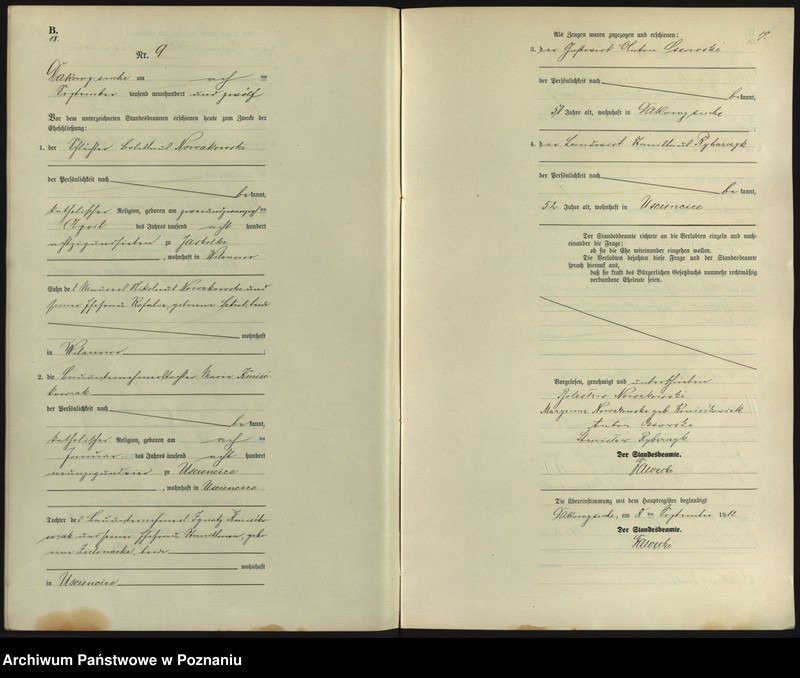 B.
18.
Nr. 9
Dakowy suche am acht ten
September tausend neunhundert und zwölf
Vor dem unterzeichneten Standesbeamten erschienen heute zum Zwecke der
Eheschließung:
1. der Nowakowski
der Persönlichkeit nach
be kannt,
katholischer Religion, geboren am zweiundzwanzigsten
April des Jahres tausend acht hundert
achtzigundsieben zu
, wohnhaft in Wilanowo
Sohn des Maurers Nikolaus Nowakowski und
seiner Ehefrau Rosalie, geborene beide
wohnhaft
in Wilanowo ;
2. die Bauunternehmerstochter Maria
der Persönlichkeit nach
be kannt,
katholischer Religion, geboren am acht ten
Januar des Jahres tausend acht hundert
neunzigundvier zu Usciencice
, wohnhaft in Usciencice
Tochter des Bauunternehmers Ignatz
und seiner Ehefrau gebo
rene beide
wohnhaft
in Usciencice
Als Zeugen waren zugezogen und erschienen:
3. der Gastwirt Anton
der Persönlichkeit nach
be kannt,
Jahre alt, wohnhaft in Dakowy suche
4. der Landwirt Stanislaus Rybarczyk
der Persönlichkeit nach
be kannt,
52 Jahre alt, wohnhaft in Usciencice
Der Standesbeamte richtete an die Verlobten einzeln und nach-
einander die Frage:
ob sie die Ehe miteinander eingehen wollen.
Die Verlobten bejahten diese Frage und der Standesbeamte
sprach hierauf aus,
daß sie kraft des Bürgerlichen Gesetzbuchs nunmehr rechtmäßig
verbundene Eheleute seien.
Vorgelesen, genehmigt und unterschrieben
Nowakowski
Maryanna Nowakowska geb.
Anton
Stanislaw Rybarczyk
Der Standesbeamte.
Die Übereinstimmung mit dem Hauptregister beglaubigt
Dakowy suche, am 8 ten September 19 12.
Der Standesbeamte.
Archiwum Państwowe w Poznaniu